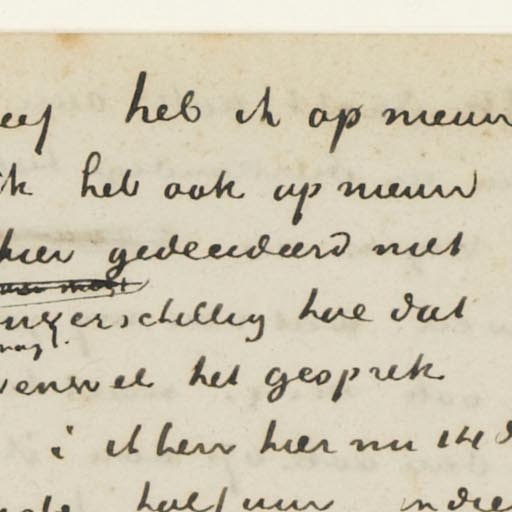 heb ik op nieuw
ik heb ook op nieuw
hier gedecideerd niet
onverschillig hoe dat
mag
evenwel het gesprek
ik ben hier nu 14 d
half uur